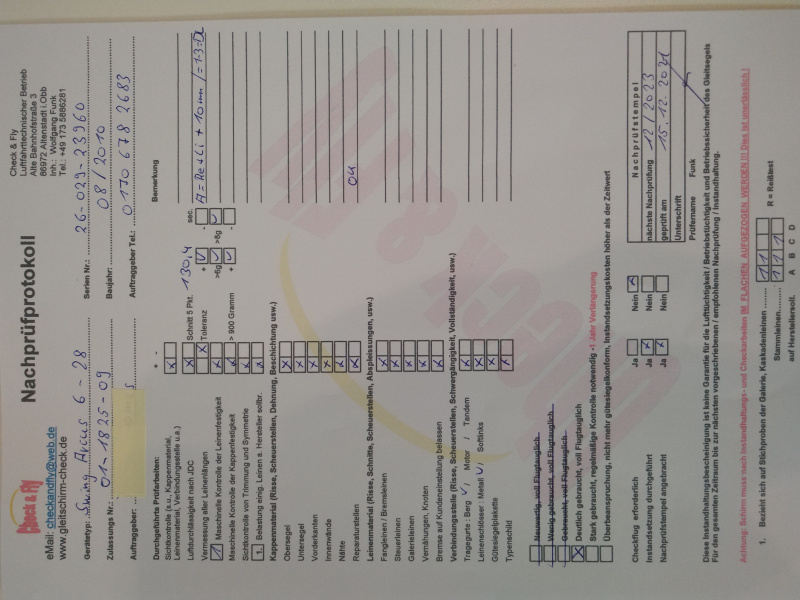 Nachprüfprotokoll
Check & Fly
Luftfahrttechnischer Betrieb
Alte Bahnhofstraße 3
86972 Altenstadt i.Obb
Inh.: Wolfgang Funk
Tel.: +49 173 5886281
CHECK & FLY
eMail: checkandfly@web.de
www.gleitschirm-check.de
Gerätetyp: Swing Arcus 6 - 28 Serien Nr.: 26-029-23960
Zulassungs Nr.: 01-1825-09 Baujahr: 08/2010
Auftraggeber: Auftraggeber Tel.: 0170 678 2683
Durchgeführte Prüfarbeiten: + - Bemerkung
Sichtkontrolle (s.u., Kappenmaterial,
Leinenmaterial, Verbindungsstelle u.a.) x
Luftdurchlässigkeit nach JDC x Schnitt 5 Pkt. 130,4 sec.
Vermessung aller Leinenlängen x Toleranz + -
1 Maschinelle Kontrolle der Leinenfestigkeit x >6g >8g
Maschinelle Kontrolle der Kappenfestigkeit x > 900 Gramm + -
Sichtkontrolle von Trimmung und Symmetrie x
1. Belastung einig. Leinen a. Hersteller sollbr. x
Kappenmaterial (Risse, Scheuerstellen, Dehnung, Beschichtung usw.)
Obersegel x
Untersegel x
Vorderkanten x
Innenwände x
Nähte x
Reparaturstellen x
Leinenmaterial (Risse, Schnitte, Scheuerstellen, Abspleissungen, usw.)
Fangleinen / Bremsleinen x
Steuerleinen x
Galerieleinen x
Vernähungen, Knoten x
Bremse auf Kundeneinstellung belassen x
Verbindungsstelle (Risse, Scheuerstellen, Schwergängigkeit, Vollständigkeit, usw.)
Tragegurte : Berg √ / Motor / Tandem x
Leinenschlösser : Metall √ / Softlinks x
Gütesiegelplakette x
Typenschild x
Neuwertig, voll Flugtauglich
Wenig gebraucht, voll Flugtauglich
Gebraucht, voll Flugtauglich
x Deutlich gebraucht, voll Flugtauglich
Stark gebraucht, regelmäßige Kontrolle notwendig -1 Jahr Verlängerung
Überbeanspruchung, nicht mehr gütesiegelkonform, Instandsetzungskosten höher als der Zeitwert
Checkflug erforderlich Ja Nein x
Instandsetzung durchgeführt Ja x Nein
Nachprüfstempel angebracht Ja x Nein
Nachprüfstempel
nächste Nachprüfung 12/2023
geprüft am 15.12.2021
Unterschrift
Prüfername Funk
Diese Instandhaltungsbescheinigung ist keine Garantie für die Lufttüchtigkeit / Betriebstüchtigkeit und Betriebssicherheit des Gleitsegels
Für den gesamten Zeitraum bis zur nächsten vorgeschriebenen / empfohlenen Nachprüfung / Instandhaltung.
Achtung: Schirm muss nach Instandhaltungs- und Checkarbeiten IM FLACHEN AUFGEZOGEN WERDEN !!! Dies ist unerlässlich !
1. Bezieht sich auf Stichproben der Galerie, Kaskadenleinen 1 1
Stammleinen 1 1 1 R = Reißtest
auf Herstellersoll. A B C D